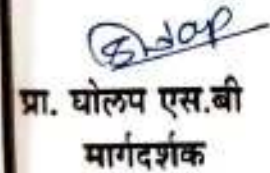 प्रा. घोलप एस.बी
मार्गदर्शक